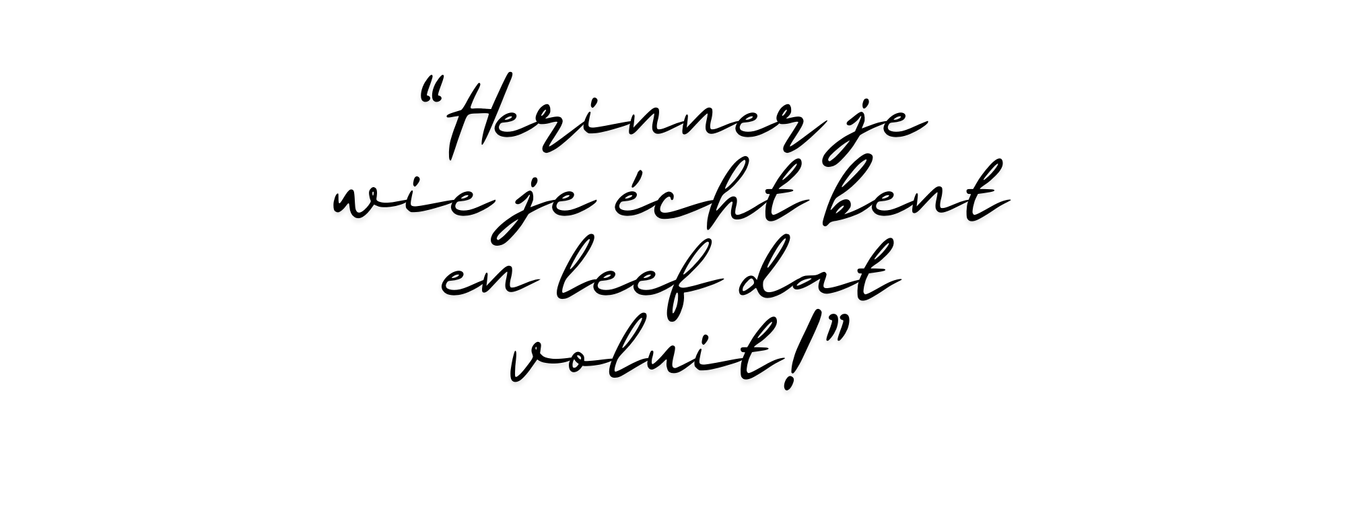 “Herinner je
wie je écht bent
en leef dat
voluit!”